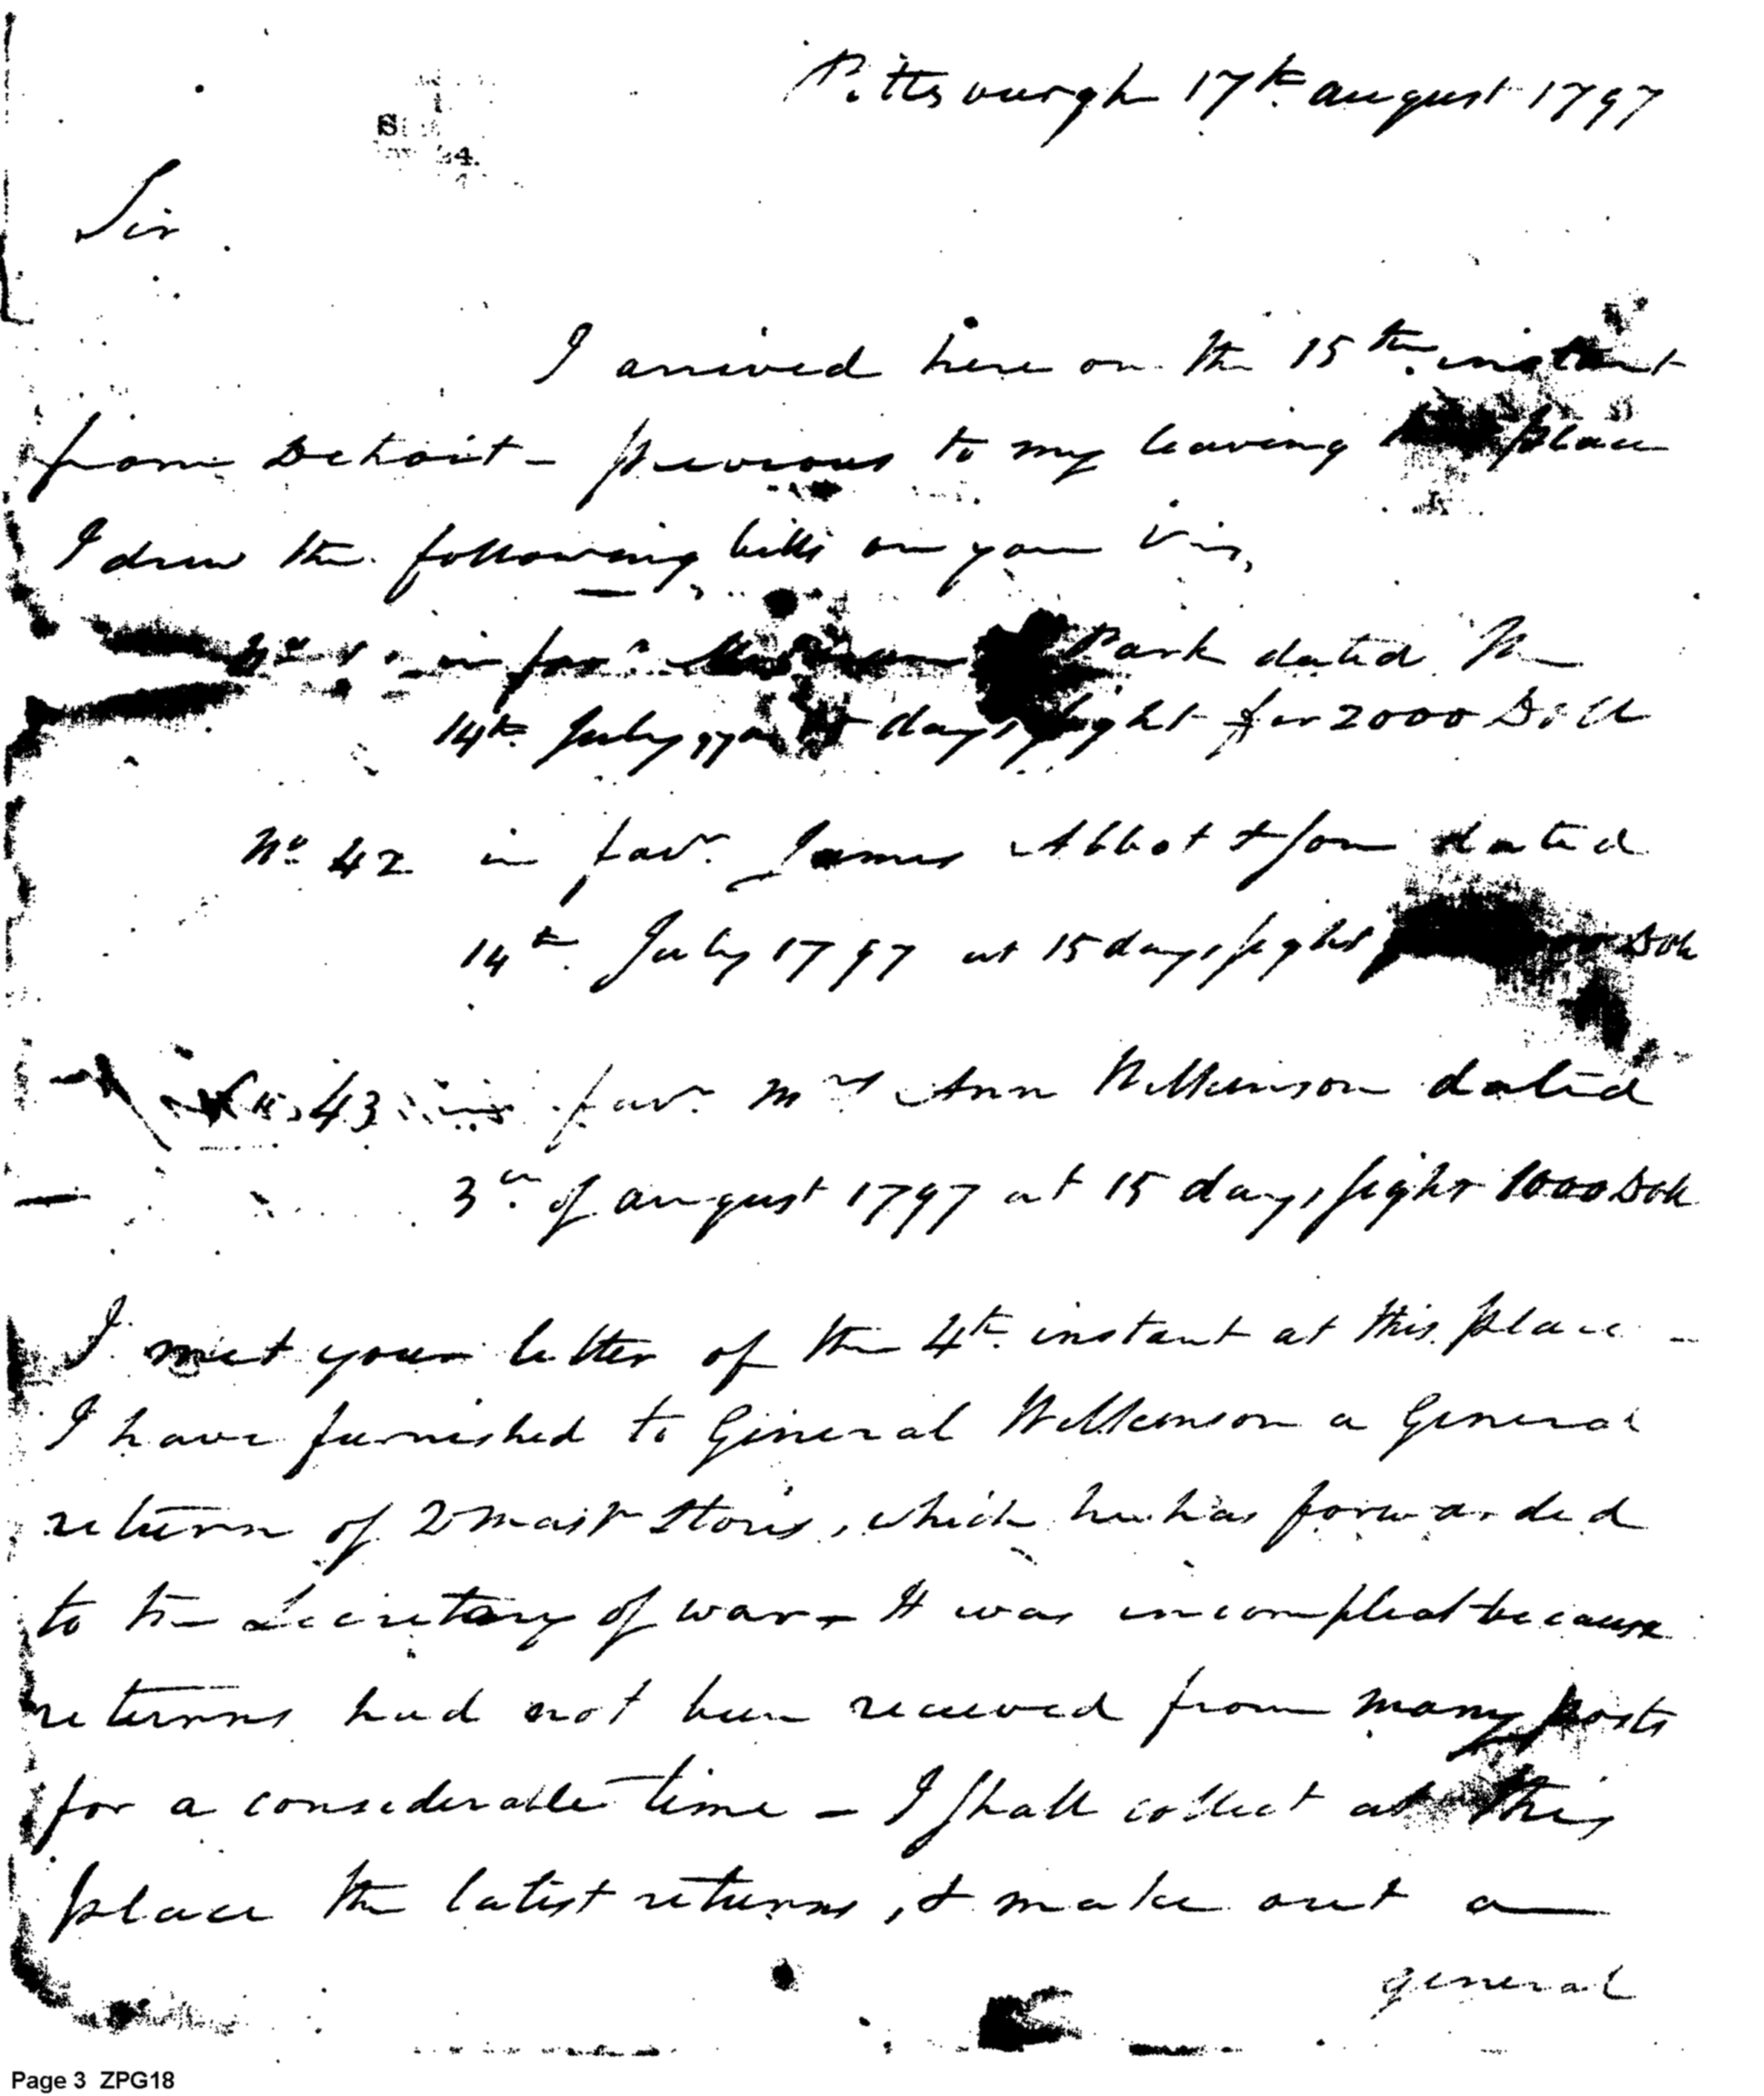 Pittsburgh 17th august 1797
Sir
I arrived here on the 15th instant
from Detroit - previous to my leaving place
I drew the following bills on you Viz,
in favr Park dated
14th July days sight for 2000 Doll
No 42 in favr. James Abbot & Son dated
14th July 1797 at 15 days sight Doll
No 43 in favr. Mrs Ann Wilkinson dated
3d of august 1797 at 15 days sight 1000 Doll
I met your letter of the 4th instant at this place -
I have furnished to General Wilkinson a General
return of Qr Mastr Stores, which he has forwarded
to the Secretary of war - It was incompleat because
returns had not been received from many posts
for a considerable time - I shall collect at this
place the latest returns, & make out a
general
Page 3 ZPG18